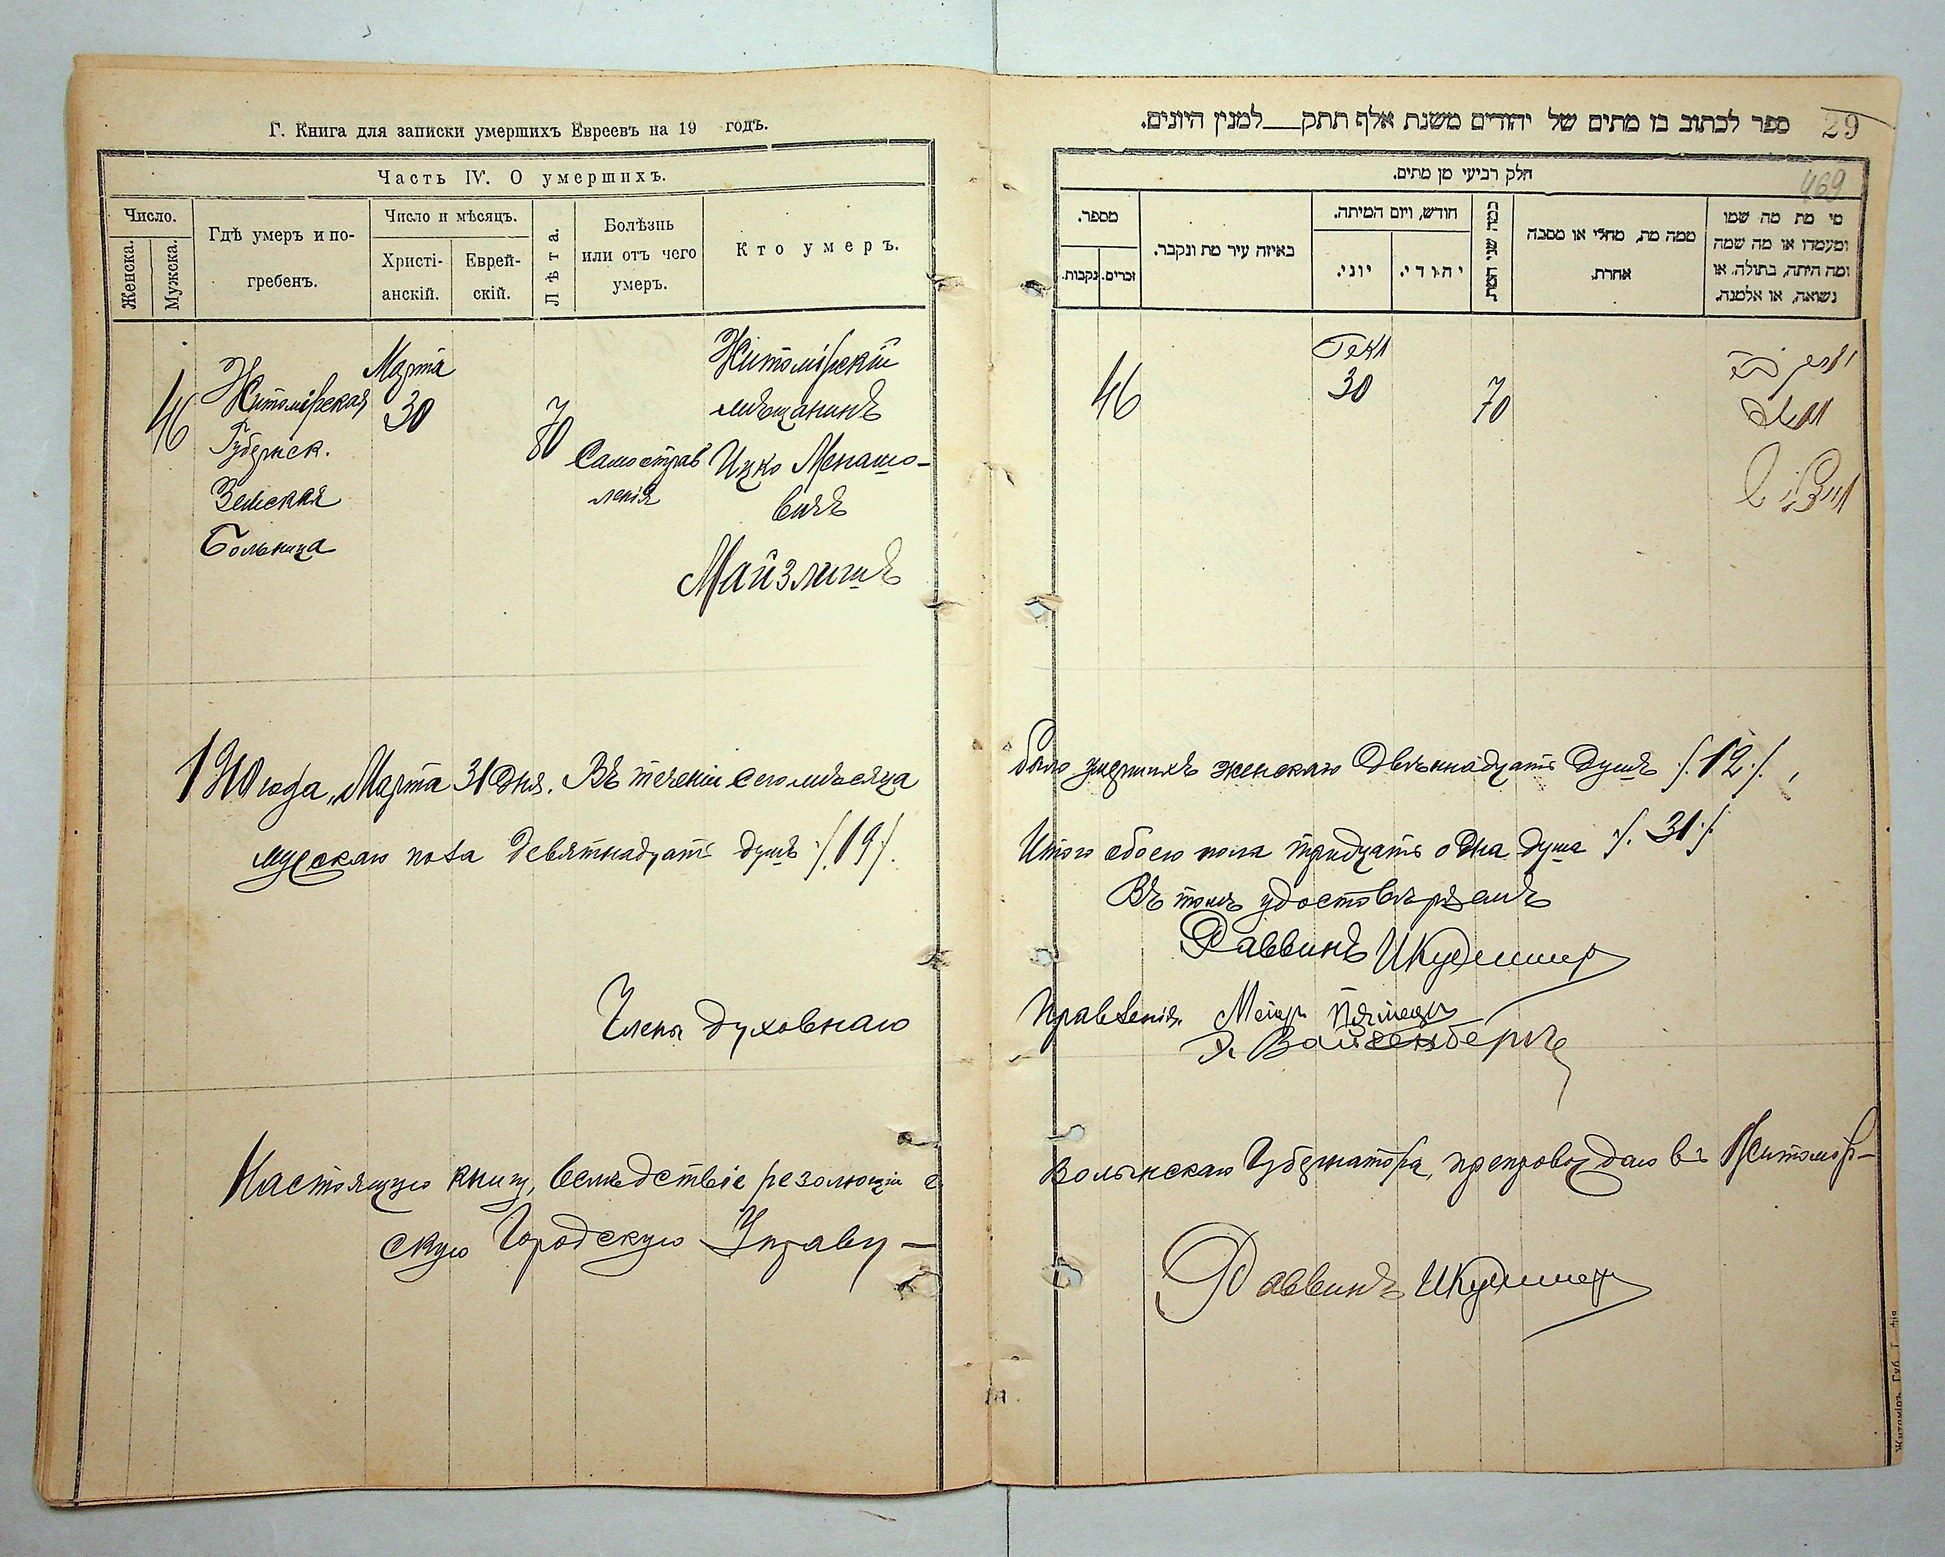 Г. Книга для записки умершихъ Евреевъ на 19 годъ.
Часть IV. О умершихъ.
Число.
Женска.
Мужска.
Гдѣ умеръ и по-
гребенъ.
Число и мѣсяцъ.
Христі-
анскій.
Еврей-
скій.
Лѣта.
Болѣзнь
или отъ чего
умеръ.
Кто умеръ.
46
Житомірская
Губернск.
Земская
Больница
Марта
30
70
Самоотрав
ленія
Житомірскій
мѣщанинъ
Ицко Менашо-
вичъ
Майзлишъ
1910 года, Марта 31 дня. Въ теченіи сего мѣсяца
мужскаго пола девятнадцать душъ /.19/.
Члены духовнаго
Настоящую книгу, вслѣдствіе резолюціи г.
скую Городскую Управу —
29
469
ספר לכתוב בו מתים של יהודים משנת אלף תתק___למנין היונים.
חלק רביעי מן מתים.
מספר.
זכרים.
נקבות.
באיזה עיר מת ונקבר.
חודש, ויום המיתה.
יוני.
יהודי.
כמה שני המת
ממה מת, מחלי או מסבה
אחרת.
מי מת מה שמו
ומעמדו או מה שמה
ומה היתה, בתולה, או
נשואה, או אלמנה.
46
30
70
было умершихъ женскаго двѣнадцать душъ /.12./,
Итого обоего пола тридцать одна душа /.31./
Въ томъ удостовѣряемъ
Раввинъ
Правленія
Вайсенбергъ
Волынскаго Губернатора, препровождаю въ Житомір-
Раввинъ
Житоміръ. Губ. Т